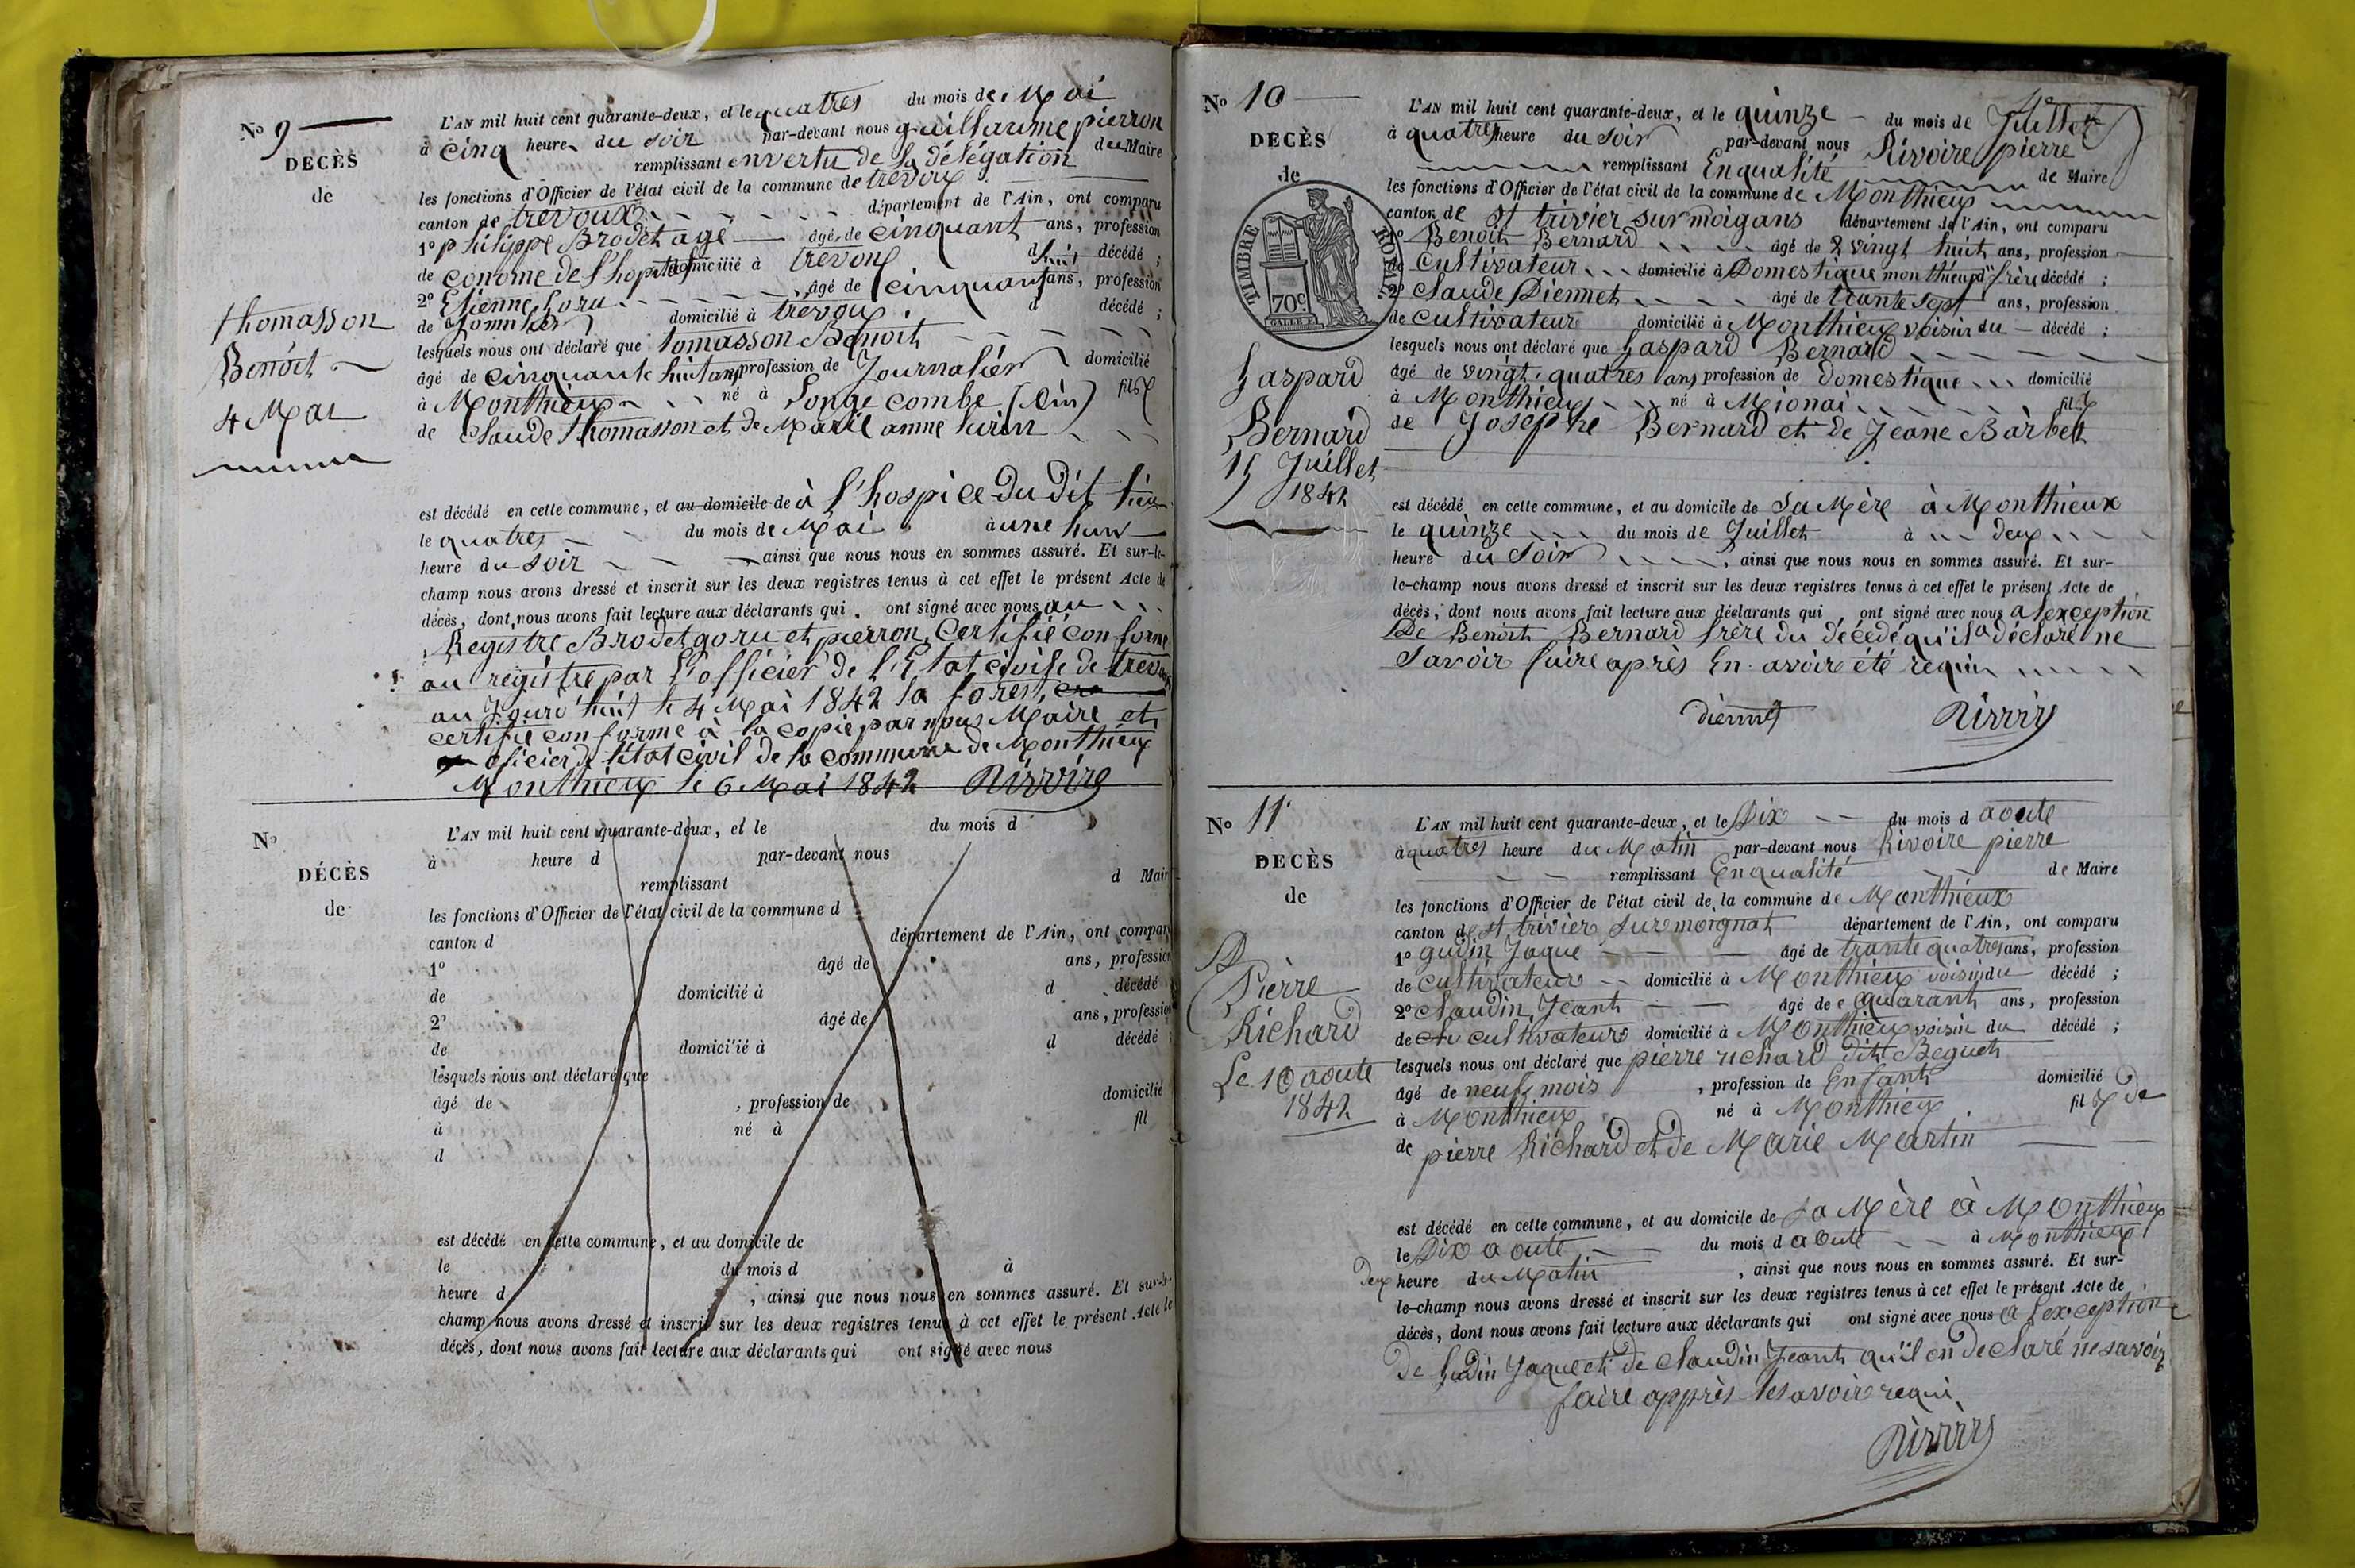 No 9
DECÈS
de
Thomasson
Benoit
4 Mai
L'AN mil huit cent quarante-deux, et le quatres du mois de Mai
à cinq heures du soir par-devant nous guillaume pierron
remplissant envertu de la délégation du Maire
les fonctions d'Officier de l'état civil de la commune de trevoux
canton de trevoux département de l'Ain, ont comparu
1o philippe Brodet agé âgé de cinquant ans, profession
de conome de l'hopital domicilié à trevoux décédé ;
2o Etienne Goru âgé de cinquant ans, profession
de domicilié à trevoux d décédé ;
lesquels nous ont déclaré que tomasson Benoit
âgé de cinquante huit ans profession de Journalier domicilié
à Monthieux né à Longe combe (Ain) fils
de Claude Thomasson et de Marie anne
est décédé en cette commune, et au domicile de à l'hospice du dit lieu
le quatres du mois de Mai à une heur
heure du soir ainsi que nous nous en sommes assuré. Et sur-le-
champ nous avons dressé et inscrit sur les deux registres tenus à cet effet le présent Acte de
décès, dont nous avons fait lecture aux déclarants qui ont signé avec nous au
Registre Brodet goru et pierron, Certifié conforme
au registre par l'officier de l'Etat civile de trevoux
au Jourd'huit le 4 Mai 1842 la forest,
certifié conforme à la copie par nous Maire et
oficier de l'état civil de la commune de Monthieux
Monthieux le 6 Mai 1842 Rivoire
No
DÉCÈS
de
L'AN mil huit cent quarante-deux, et le du mois d
à heure d par-devant nous
remplissant d Maire
les fonctions d'Officier de l'état civil de la commune d
canton d département de l'Ain, ont comparu
1o âgé de ans, profession
de domicilié à d décédé
2o âgé de ans, profession
de domicilié à d décédé ;
lesquels nous ont déclaré que
âgé de , profession de domicilié
à né à fil
d
est décédé en cette commune, et au domicile de
le du mois d à
heure d , ainsi que nous nous en sommes assuré. Et sur-le-
champ nous avons dressé et inscrit sur les deux registres tenus à cet effet le présent Acte de
décès, dont nous avons fait lecture aux déclarants qui ont signé avec nous
No 10
DECÈS
de
TIMBRE ROYAL
70c
Gaspard
Bernard
15 Juillet
1842
L'AN mil huit cent quarante-deux, et le quinze du mois de Juillet
à quatres heure du soir par-devant nous Rivoire pierre
remplissant Enqualité de Maire
les fonctions d'Officier de l'état civil de la commune de Monthieux
canton de st trivier sur moigans département de l'Ain, ont comparu
1o Benoit Bernard âgé de vingt huit ans, profession
de Cultivateur domicilié à Domestique monthieux frère décédé ;
2o Claude Diennet âgé de trante sept ans, profession
de Cultivateur domicilié à Monthieux voisin du décédé ;
lesquels nous ont déclaré que Gaspard Bernard
âgé de vingt quatres ans profession de domestique domicilié
à Monthieux né à Mionai fils
de Josephe Bernard et de Jeane Barbet
est décédé en cette commune, et au domicile de sa Mère à Monthieux
le quinze du mois de Juillet à deux
heure du Soir , ainsi que nous nous en sommes assuré. Et sur-
le-champ nous avons dressé et inscrit sur les deux registres tenus à cet effet le présent Acte de
décès, dont nous avons fait lecture aux déclarants qui ont signé avec nous a lexception
De Benoit Bernard frère du décedé qu'il a déclaré ne
savoir faire après En avoir été requin
diennet Rivoire
No 11
DECÈS
de
Pierre
Richard
Le 10 aoute
1842
L'AN mil huit cent quarante-deux, et le Dix du mois d aoute
à quatres heure du Matin par-devant nous Rivoire pierre
remplissant Enqualité de Maire
les fonctions d'Officier de l'état civil de la commune de Monthieux
canton de st trivier sur moignat département de l'Ain, ont comparu
1o gudin Jaque âgé de trante quatres ans, profession
de cultivateur domicilié à Monthieux voisin du décédé ;
2o Claudin Jeant âgé de quarant ans, profession
de cultivateur domicilié à Monthieux voisin du décédé ;
lesquels nous ont déclaré que pierre richard dit Beguet
âgé de neuf mois , profession de Enfant domicilié
à Monthieux né à Monthieux fils de
de pierre Richard et de Marie Martin
est décédé en cette commune, et au domicile de sa Mère à Monthieux
le Dix aoute du mois d aoute à Monthieux
deux heure du Matin , ainsi que nous nous en sommes assuré. Et sur-
le-champ nous avons dressé et inscrit sur les deux registres tenus à cet effet le présent Acte de
décès, dont nous avons fait lecture aux déclarants qui ont signé avec nous a lexception
De Gudin Jaque et de Claudin Jeant qu'il on déclaré ne savoir
faire apprès les avoir requi
Rivoire